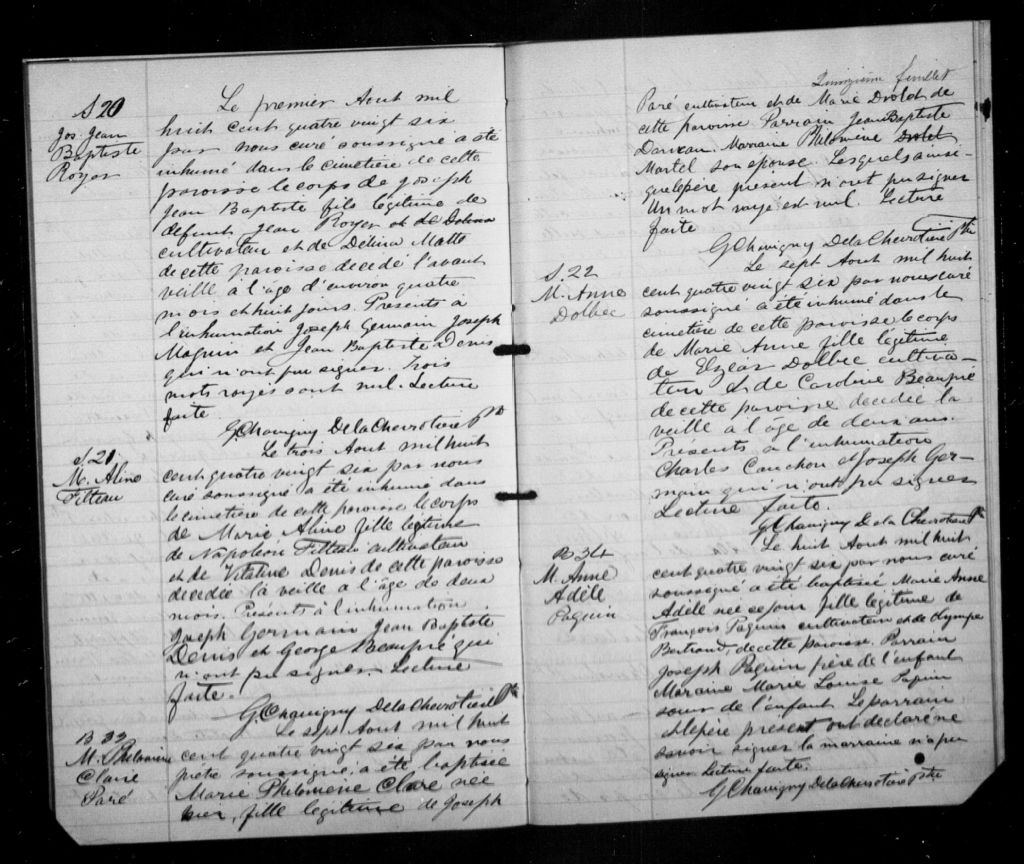 S 20
Jos. Jean
Baptiste
Royer
Le premier Aout mil
huit cent quatre vingt six
par nous curé soussigné a été
inhumé dans le cimetière de cette
paroisse le corps de Joseph
Jean Baptiste fils légitime de
défunt Jean Royer et de Delima
cultivateur et de Delina Matte
de cette paroisse decedé l'avant
veille à l'âge d'environ quatre
mois et huit jours. Presents à
l'inhumation Joseph Germain Joseph
Maguin et Jean Baptiste Denis
qui n'ont pu signer. Trois
mots rayés sont nul. Lecture
faite.
GChavigny DelaChevrotière Ptr
S 21
M. Aline
Fitteau
Le trois Aout mil huit
cent quatre vingt six par nous
curé soussigné a été inhumé dans
le cimetière de cette paroisse le corps
de Marie Aline fille légitime
de Napoléon Fitteau cultivateur
et de Vitaline Denis de cette paroisse
decedée la veille a l'âge de deux
mois. Présents à l'inhumation
Joseph Germain Jean Baptiste
Denis et George Beaupré qui
n'ont pu signer. Lecture
faite.
GChavigny DelaChevrotière Ptr
B 33
M. Philomène
Claire
Paré
Le sept Aout mil huit
cent quatre vingt six par nous
prêtre soussigné a été baptisée
Marie Philomène Claire née
hier, fille légitime de Joseph
Quinzième feuillet
Paré cultivateur et de Marie Drolet de
cette paroisse Parrain Jean Baptiste
Darveau. Marraine Philomène Drolet
Martel son épouse. Lesquels ainsi
que le père présent n'ont pu signer
Un mot rayé est nul. Lecture
faite
GChavigny DelaChevrotière Ptr
S. 22
M. Anne
Dolbec
Le sept Aout mil huit
cent quatre vingt six par nous curé
soussigné a été inhumé dans le
cimetière de cette paroisse le corps
de Marie Anne fille légitime
de Elzear Dolbec cultiva-
teur & de Caroline Beaupré
de cette paroisse decedée la
veille à l'âge de deux ans.
Présents à l'inhumation
Charles Cauchon & Joseph Ger-
main qui n'ont pu signer
Lecture faite.
GChavigny DelaChevrotière Ptr
B 34
M. Anne
Adèle
Paquin
Le huit Aout mil huit
cent quatre vingt six par nous curé
soussigné a été baptisé Marie Anne
Adèle née ce jour fille légitime de
François Paquin cultivateur et de Olympe
Bertrand, de cette paroisse. Parrain
Joseph Paquin frère de l'enfant
Maraine Marie Louise Papin
sœur de l'enfant Le parrain
& le père présent ont déclaré ne
savoir signer la marraine n'a pu
signer Lecture faite.
GChavigny DelaChevrotière Ptr